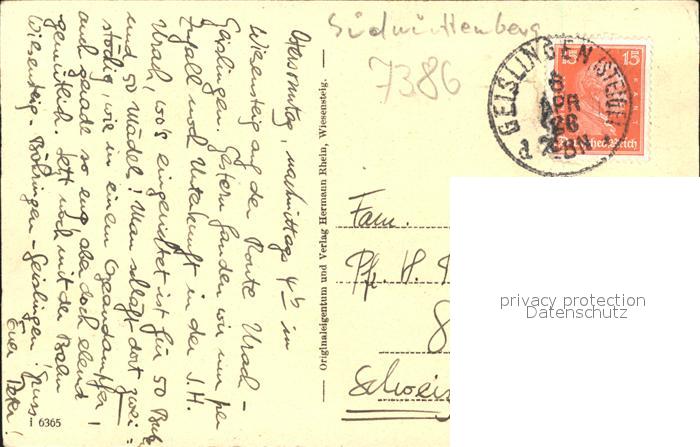 Südwürttemberg
7386
GEISLINGEN (STEIGE)
APR
26
15 15
Deutsches Reich
Ostersonntag, nachmittags 4 h im
Wiesensteig auf der Route Urach -
Geislingen. Gestern fanden wir nur per
Zufall noch Unterkunft in der J.H.
Urach, wo's eingerichtet ist für 50 Bub.
und 50 Mädel! Man schläft dort zwei=
stöckig, wie in einem Ozeandampfer!
auch gerade so eng, aber doch elend
gemütlich. Jetzt noch mit der Bahn
Wiesensteig - Böhringen - Geislingen! Gruss
Euer Peter!
6365
Originaleigentum und Verlag Hermann Rhein, Wiesensteig.
Fam.
Pfr. H.
Schweiz
privacy protection
Datenschutz